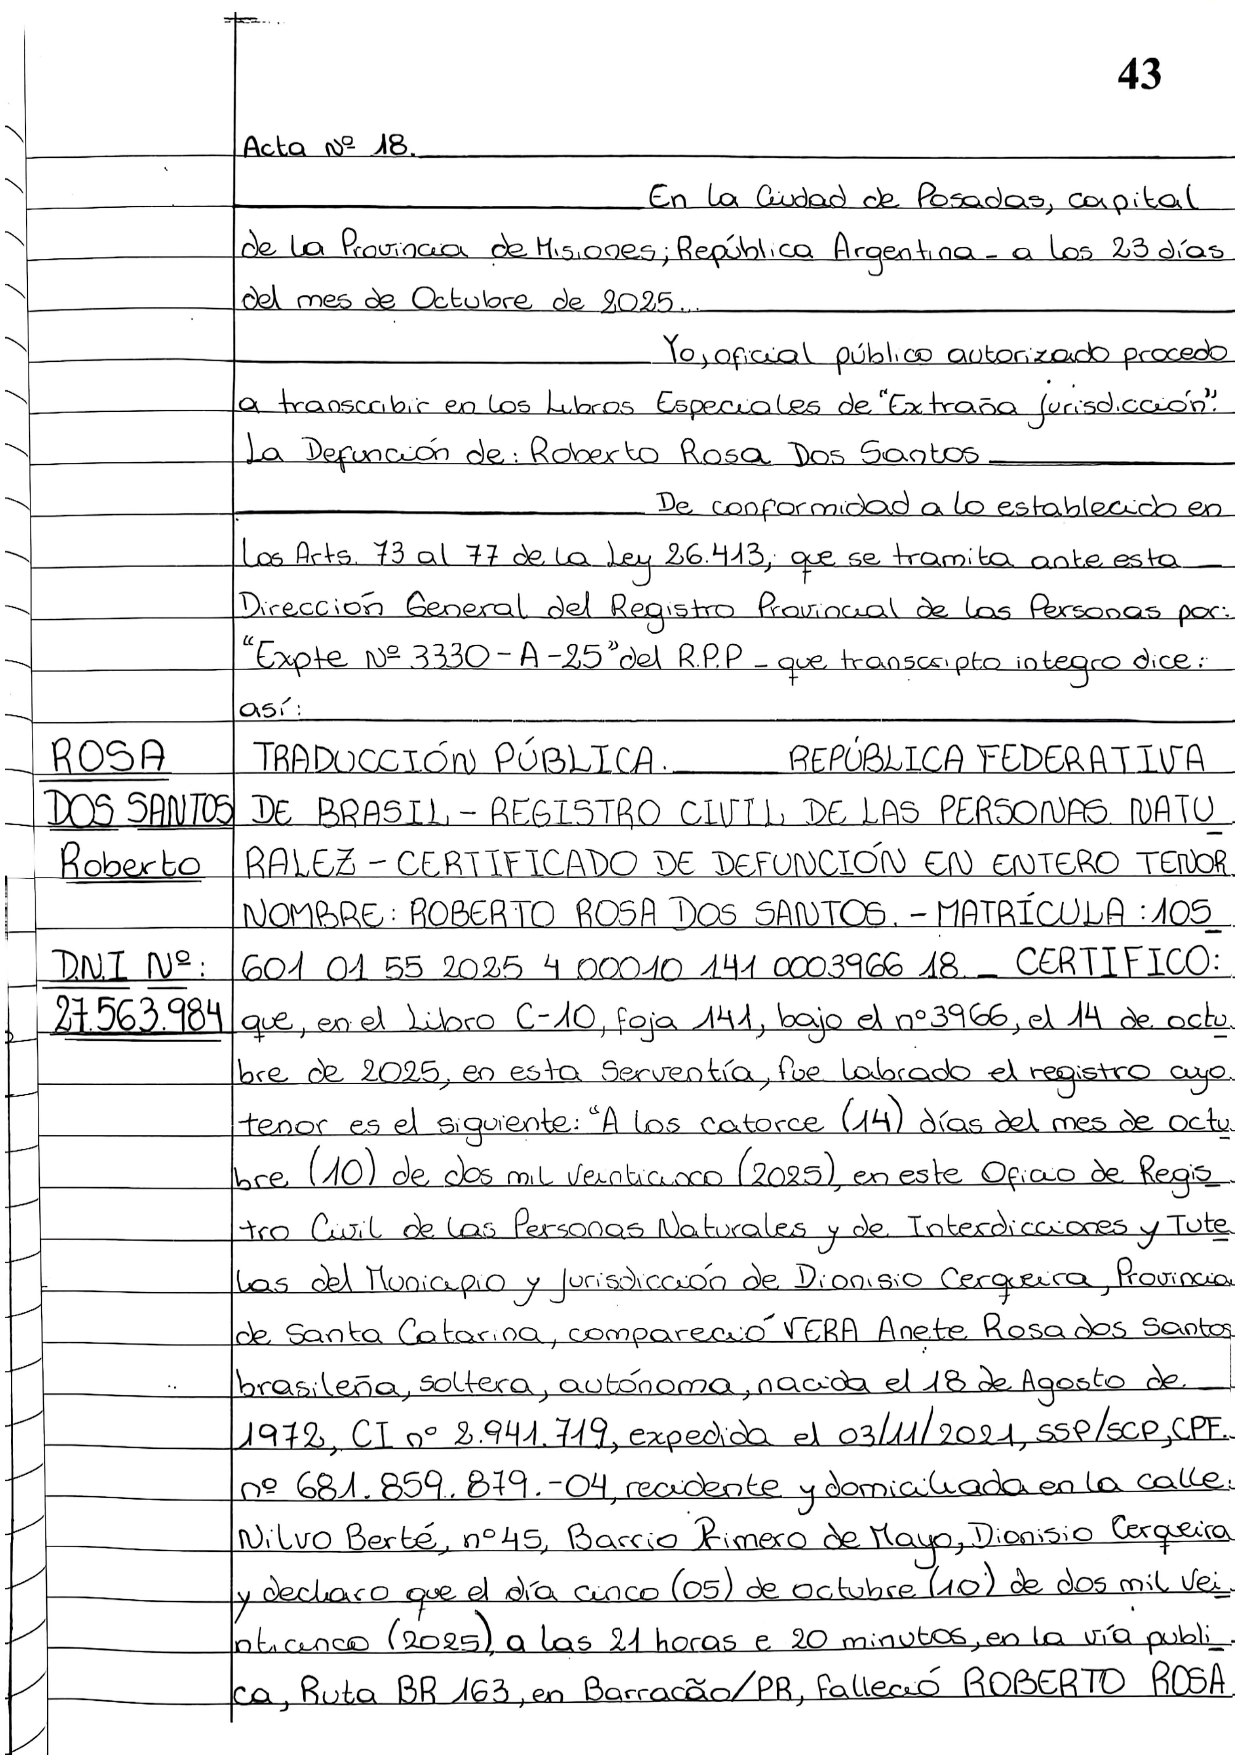 43
Acta Nº 18.
En la Ciudad de Posadas, capital
de la Provincia de Misiones; República Argentina - a los 23 días
del mes de Octubre de 2025..
Yo, oficial público autorizado procedo
a transcribir en los Libros Especiales de "Extraña jurisdicción".
La Defunción de: Roberto Rosa Dos Santos
De conformidad a lo establecido en
Los Arts. 73 al 77 de la Ley 26.413, que se tramita ante esta
Dirección General del Registro Provincial de las Personas por:
"Expte Nº 3330-A-25" del R.P.P - que transcripto integro dice:
así:
ROSA TRADUCCIÓN PÚBLICA. REPÚBLICA FEDERATIVA
DOS SANTOS DE BRASIL - REGISTRO CIVIL DE LAS PERSONAS NATU
Roberto RALEZ - CERTIFICADO DE DEFUNCIÓN EN ENTERO TENOR
NOMBRE: ROBERTO ROSA DOS SANTOS. - MATRÍCULA : 105
D.N.I Nº: 601 01 55 2025 4 00010 141 0003966 18. - CERTIFICO:
27.563.984 que, en el Libro C-10, foja 141, bajo el nº 3966, el 14 de octu
bre de 2025, en esta Serventía, fue labrado el registro cuyo
tenor es el siguiente: "A los catorce (14) días del mes de octu
bre (10) de dos mil veinticinco (2025), en este Oficio de Regis
tro Civil de las Personas Naturales y de Interdicciones y Tute
las del Municipio y jurisdicción de Dionisio Cerqueira, Provincia
de Santa Catarina, compareció VERA Anete Rosa dos Santos
brasileña, soltera, autónoma, nacida el 18 de Agosto de
1972, CI nº 2.941.719, expedida el 03/11/2021, SSP/SCP, CPF.
nº 681.859.879.-04, recidente y domiciliada en la calle:
Nilvo Berté, nº 45, Barrio Primero de Mayo, Dionisio Cerqueira
y declaro que el día cinco (05) de octubre (10) de dos mil vei
nticinco (2025), a las 21 horas e 20 minutos, en la vía publi
ca, Ruta BR 163, en Barracão/PR, falleció ROBERTO ROSA